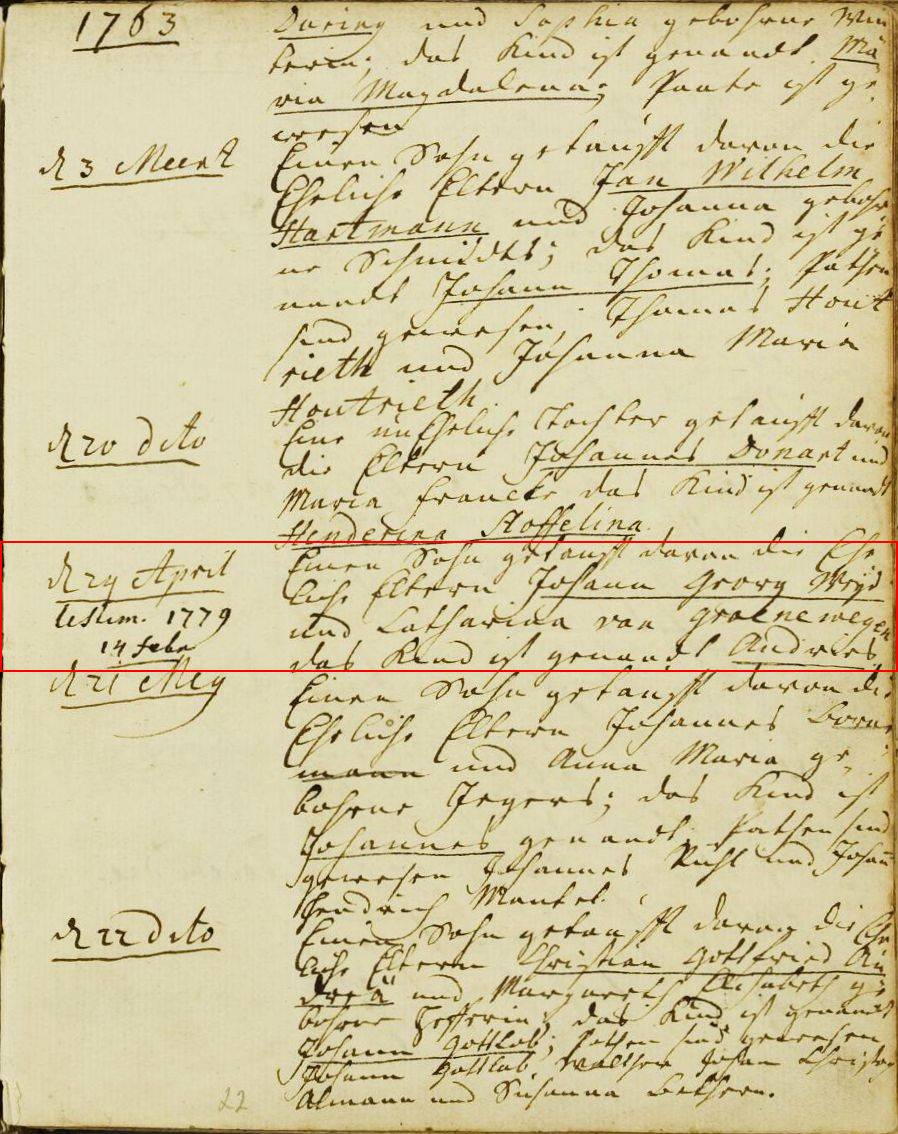 1763
Doring und Sophia gebohrne Win
terin; das Kind ist genandt Ma
ria Magdalena; Paate ist ge
wesen
d 3 Meertz
Einen Sohn getaufft davon die
Eheliche Eltern Jan Wilhelm
Hartmann und Johanna gebohr
ne Schmidts; das Kind ist ge
nandt Johann Thomas; Pathen
sind gewesen, Thomas Hout
rieth und Johanna Maria
Houtrieth.
d 20 dito
Eine unEheliche Tochter getaufft davon
die Eltern Johannes Donart und
Maria Francke das Kind ist genandt
Henderina Stoffelina.
d 29 April
Einen Sohn getaufft davon die Ehe
liche Eltern Johann Georg Weyd
testim. 1779
und Catharina van Groenewegen
14 Febr
das Kind ist genandt Andries
d 21 Mey
Einen Sohn getaufft davon die
Eheliche Eltern Johannes Borne
mann und Anna Maria ge
bohrne Jegers; das Kind ist
Johannes genandt. Pathen sind
gewesen Johannes Ruhl und Johan
Hendrich Mantel.
d 22 dito
Einen Sohn getaufft davon die Ehe
liche Eltern Christian Gottfried An
dreä und Margareth Elisabeth ge
bohrne; das Kind ist genandt
Johann Gottlob; Pathen sind gewesen
Johann Gottlob Walther Johan Christop
Almann und Susanna Bethern.
22